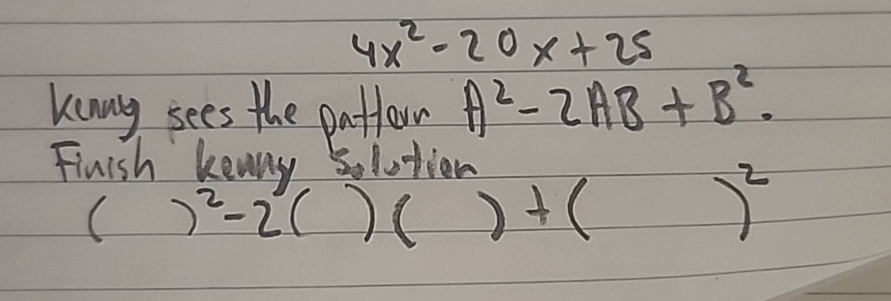 4x² - 20x + 25
Kenny sees the pattern A² - 2AB + B².
Finish kenny Solution
(  )² - 2(  )(  ) + (  )²